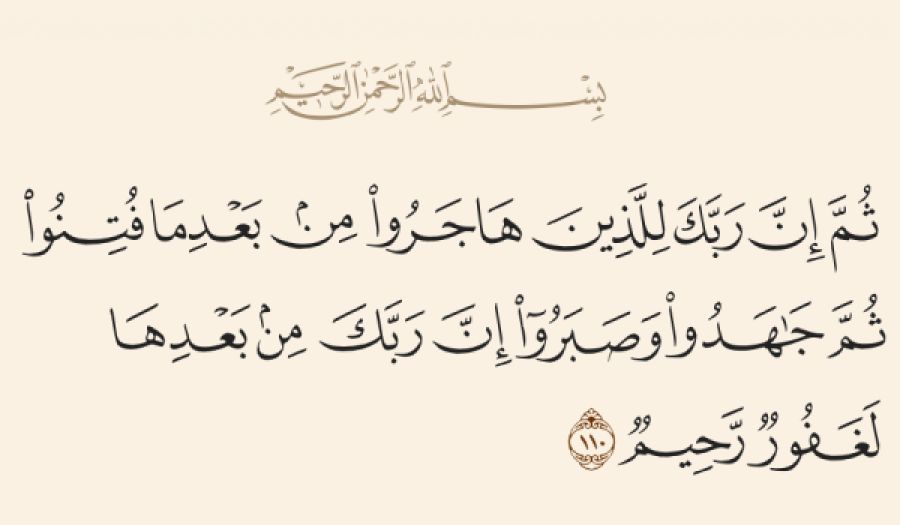 بِسْمِ ٱللَّهِ ٱلرَّحْمَٰنِ ٱلرَّحِيمِ
ثُمَّ إِنَّ رَبَّكَ لِلَّذِينَ هَاجَرُوا۟ مِنۢ بَعْدِ مَا فُتِنُوا۟
ثُمَّ جَٰهَدُوا۟ وَصَبَرُوٓا۟ إِنَّ رَبَّكَ مِنۢ بَعْدِهَا
لَغَفُورٌ رَّحِيمٌ ١١٠